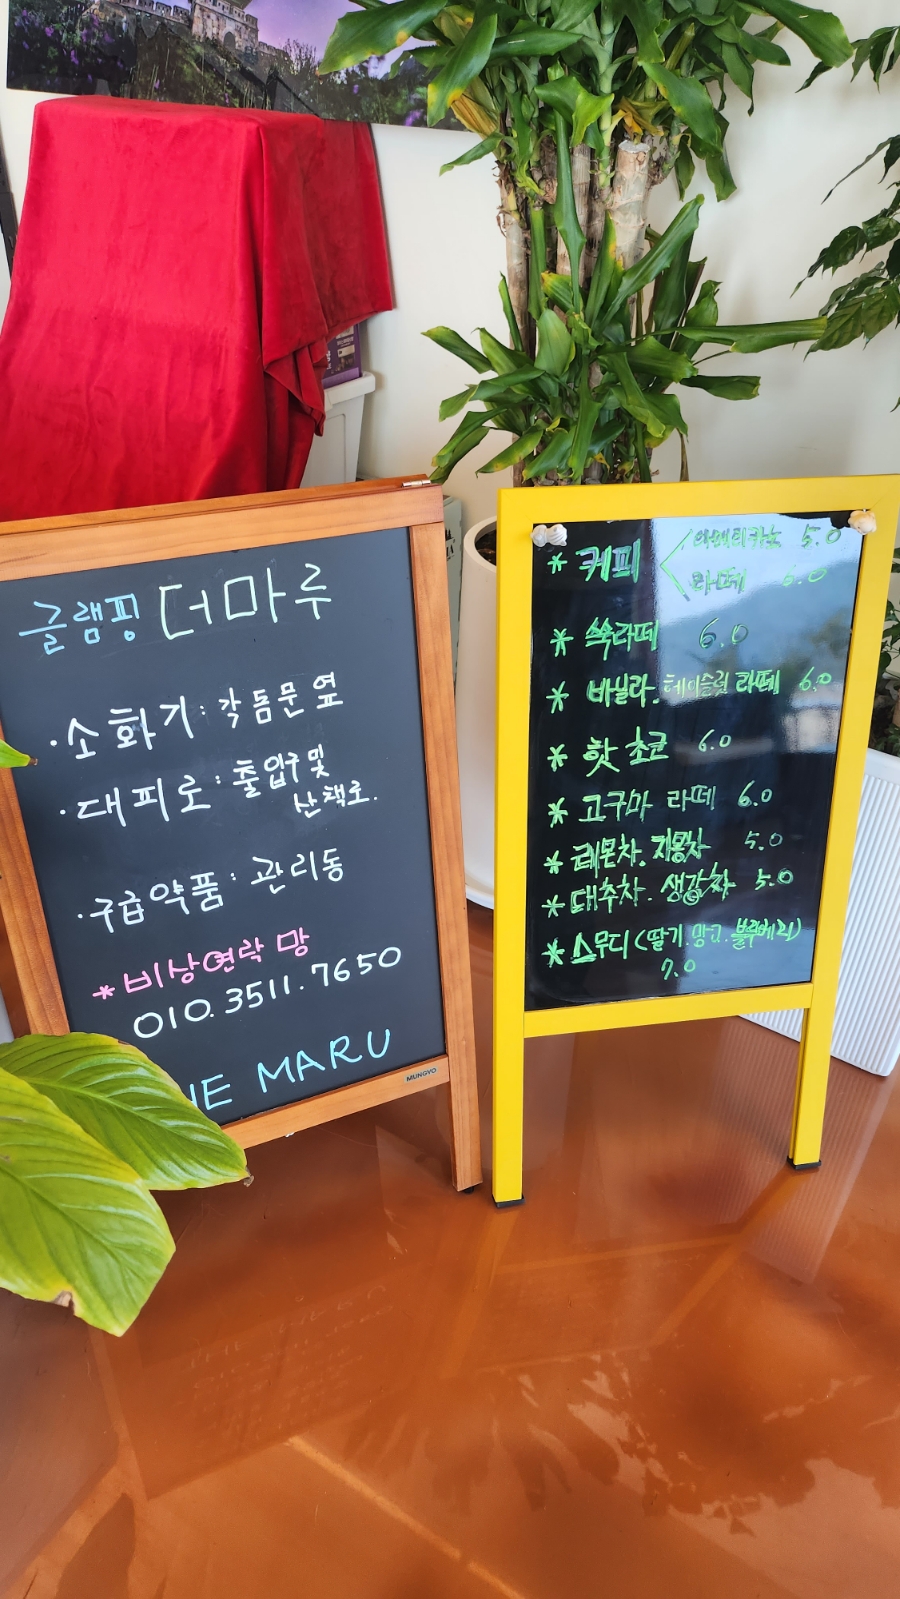 글램핑 더마루
· 소화기 : 각 돔 문 옆
· 대피로 : 출입구 및
산책로.
· 구급약품 : 관리동
* 비상연락 망
010. 3511. 7650
HE MARU
MUNGYO
* 커피 < 아메리카노 5.0
라떼 6.0
* 쑥라떼 6.0
* 바닐라. 헤이즐넛 라떼 6.0
* 핫 초코 6.0
* 고구마 라떼 6.0
* 레몬차. 자몽차 5.0
* 대추차. 생강차 5.0
* 스무디 (딸기. 망고. 블루베리)
7.0